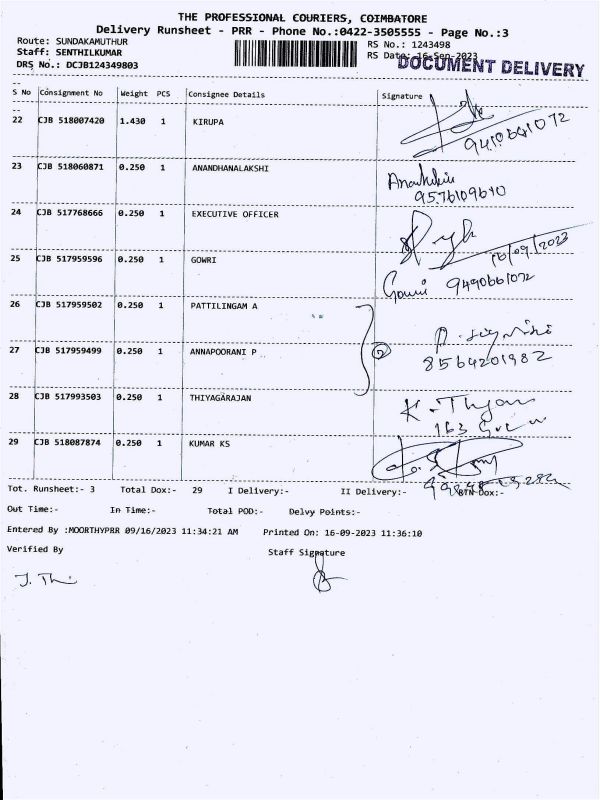 THE PROFESSIONAL COURIERS, COIMBATORE
Delivery Runsheet - PRR - Phone No.:0422-3505555 - Page No.:3
Route: SUNDAKAMUTHUR
RS No.: 1243498
Staff: SENTHILKUMAR
RS Date: 16-Sep-2023
DOCUMENT DELIVERY
DRS No.: DCJB124349803
S No Consignment No Weight PCS Consignee Details Signature
22 CJB 518007420 1.430 1 KIRUPA
23 CJB 518060871 0.250 1 ANANDHANALAKSHI
9576109610
24 CJB 517768666 0.250 1 EXECUTIVE OFFICER
16/09/2023
25 CJB 517959596 0.250 1 GOWRI
Gowri 9490661072
26 CJB 517959502 0.250 1 PATTILINGAM A
27 CJB 517959499 0.250 1 ANNAPOORANI P
2
8564201982
28 CJB 517993503 0.250 1 THIYAGARAJAN
K. Thyan
163
29 CJB 518087874 0.250 1 KUMAR KS
Tot. Runsheet:- 3 Total Dox:- 29 I Delivery:- II Delivery:- RTN Dox:-
Out Time:- In Time:- Total POD:- Delvy Points:-
Entered By :MOORTHYPRR 09/16/2023 11:34:21 AM Printed On: 16-09-2023 11:36:10
Verified By Staff Signature